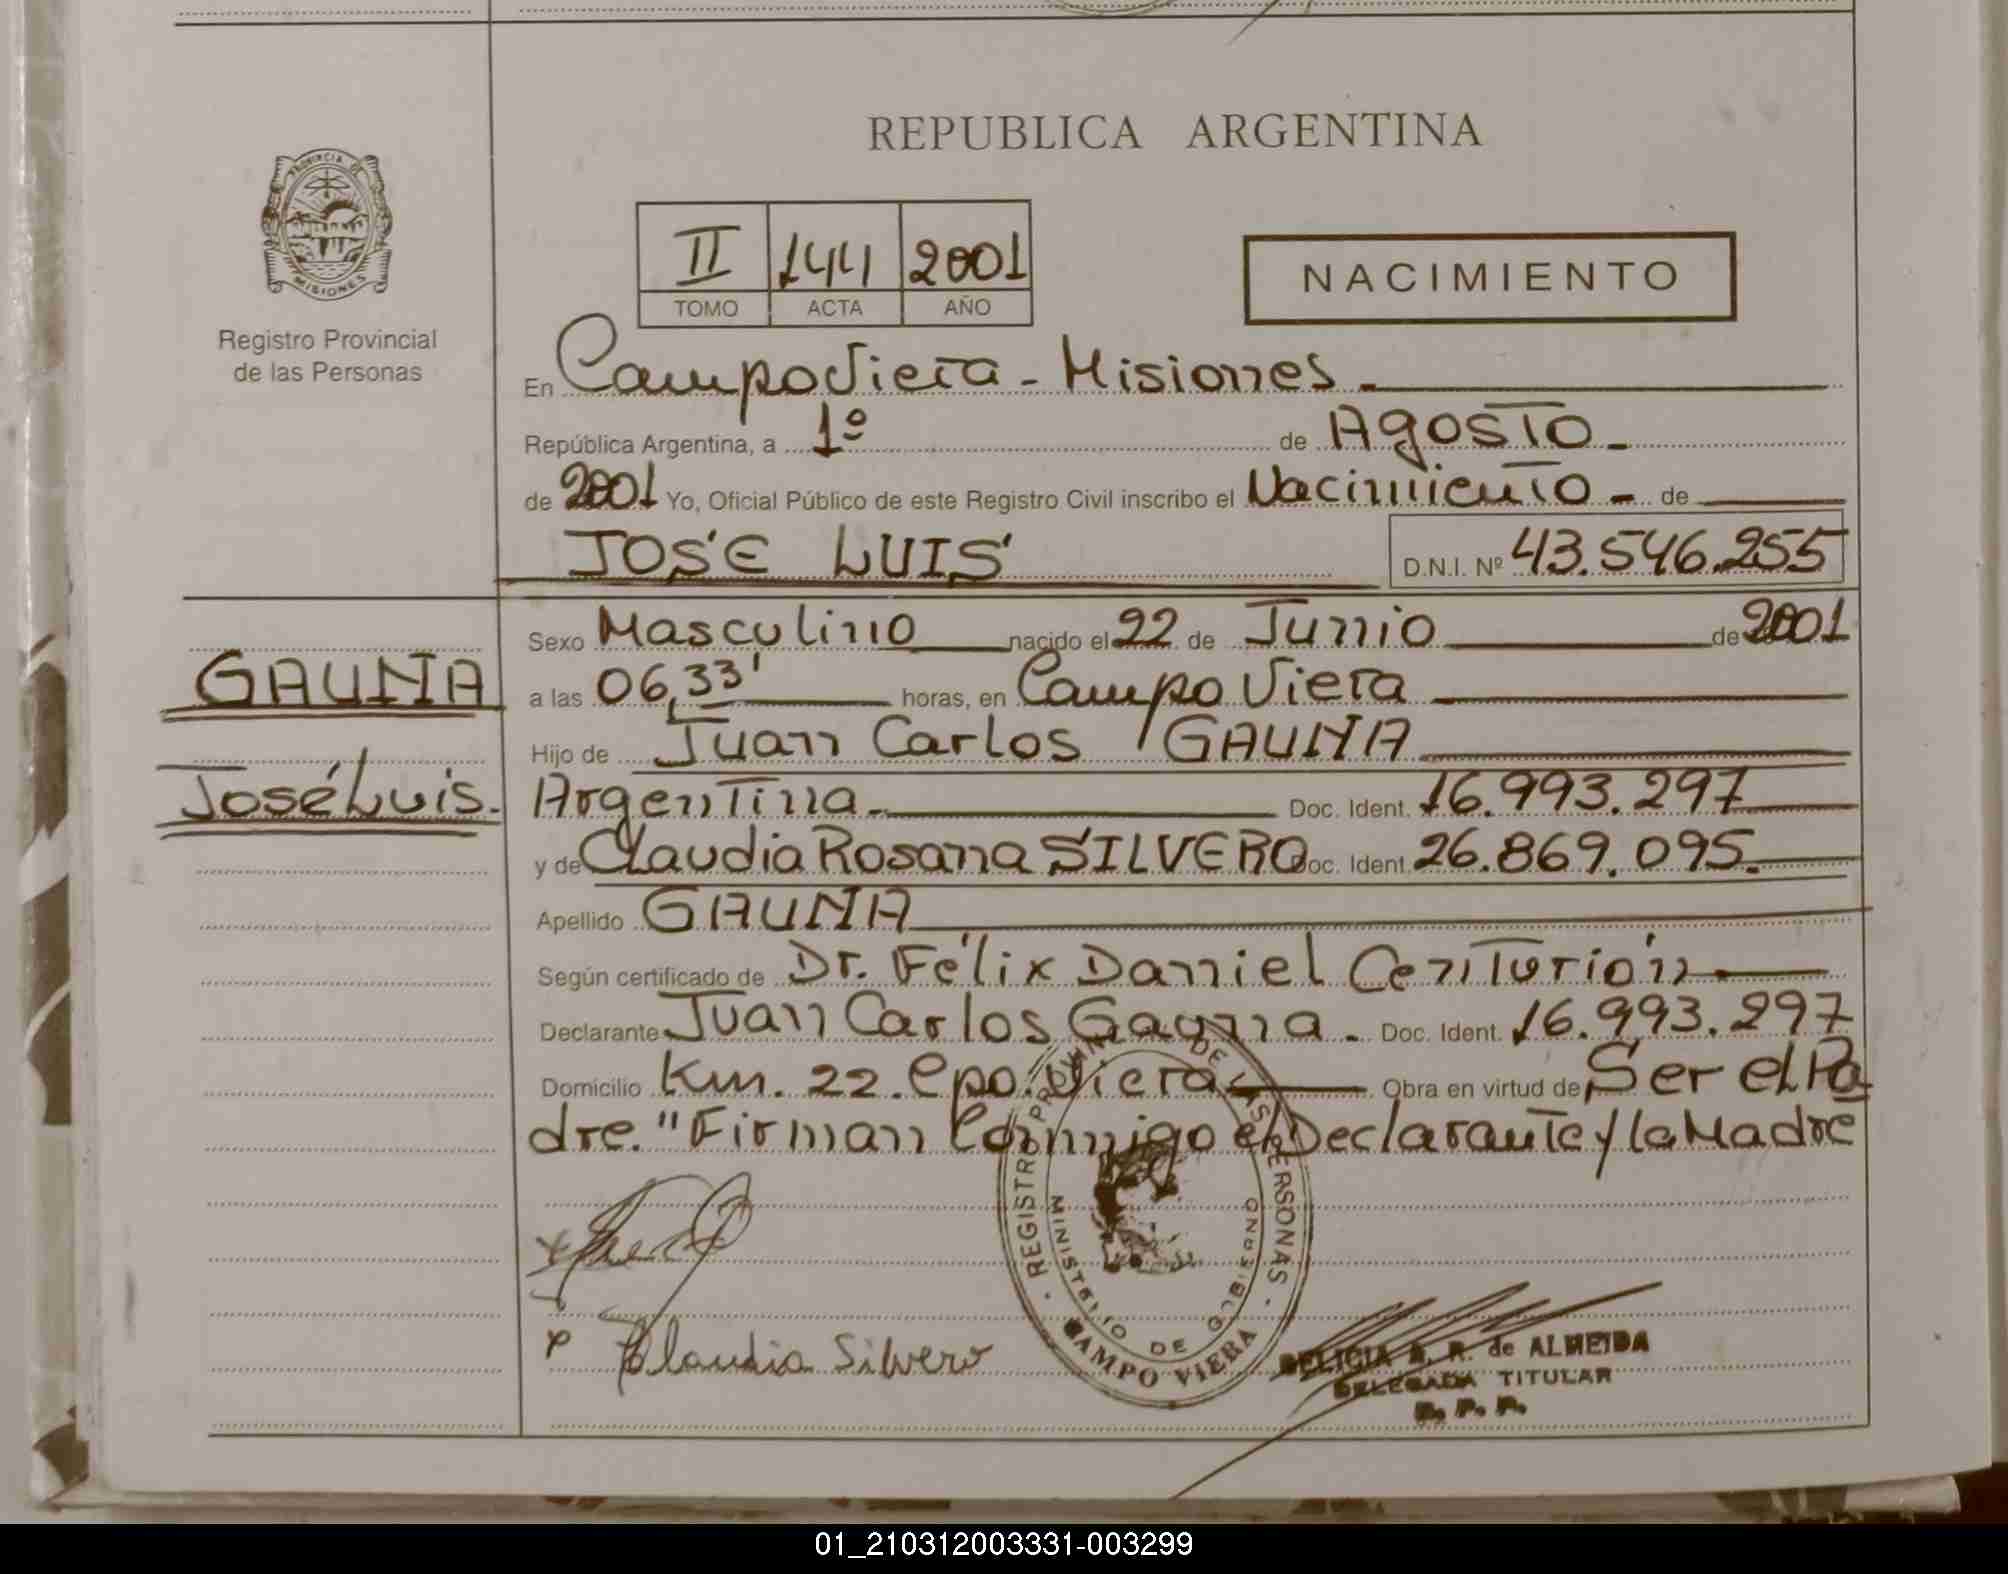 REPUBLICA ARGENTINA
PROVINCIA DE
MISIONES
Registro Provincial
de las Personas
II 144 2001
TOMO ACTA AÑO
NACIMIENTO
En Campo Viera - Misiones -
República Argentina, a 1º de Agosto -
de 2001 Yo, Oficial Público de este Registro Civil inscribo el Nacimiento - de
JOSÉ LUIS D.N.I. Nº 43.546.255
GAUNA
José Luis.
Sexo Masculino nacido el 22 de Junio de 2001
a las 06,33' horas, en Campo Viera
Hijo de Juan Carlos GAUNA
Argentina - Doc. Ident. 16.993.297
y de Claudia Rosana SILVERO Doc. Ident. 26.869.095.
Apellido GAUNA
Según certificado de Dr. Félix Daniel Centurión
Declarante Juan Carlos Gauna. Doc. Ident. 16.993.297
Domicilio Km. 22. Cpo. Viera Obra en virtud de Ser el Pa
dre. "Firman Conmigo el Declarante y la Madre
REGISTRO PROVINCIAL DE LAS PERSONAS
MINISTERIO DE GOBIERNO
CAMPO VIERA
Claudia Silvero
DELICIA R. de ALMEIDA
DELEGADA TITULAR
R. P. P.
01_210312003331-003299